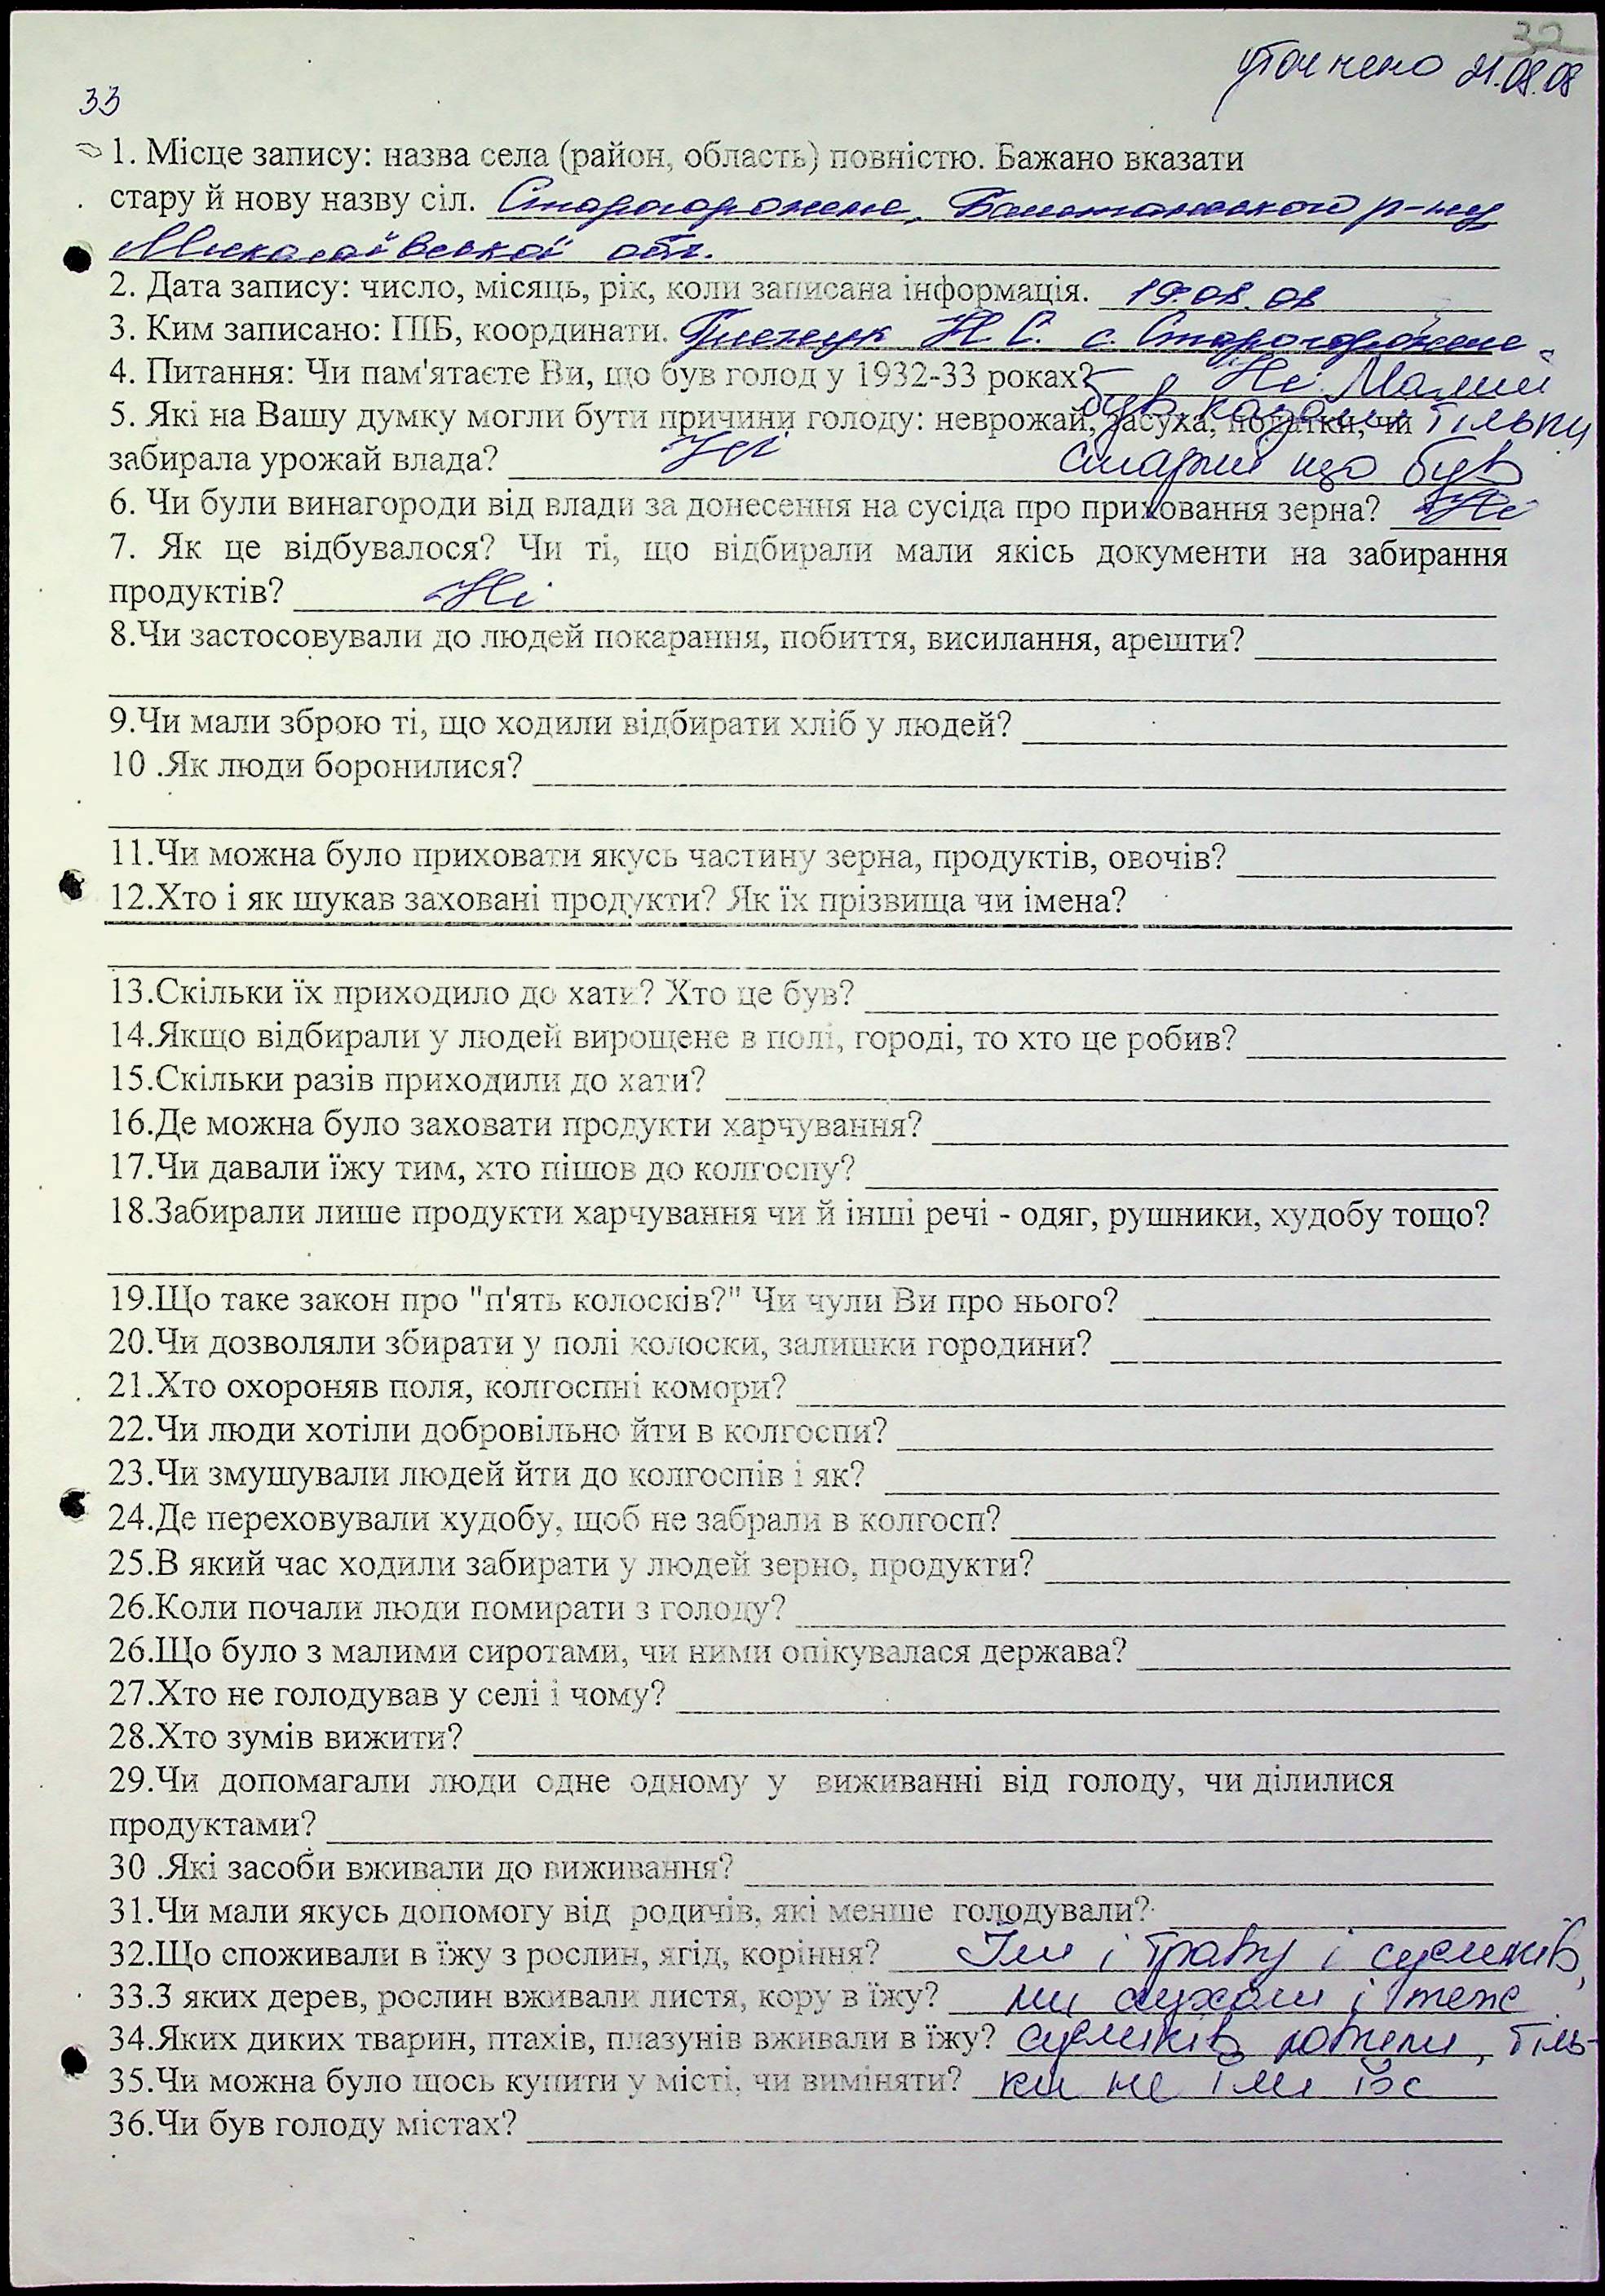 32
уточнено 21.08.08
33
1. Місце запису: назва села (район, область) повністю. Бажано вказати
стару й нову назву сіл. Старогорожене, Баштанського р-ну
Миколаївської обл.
2. Дата запису: число, місяць, рік, коли записана інформація. 19.08.08
3. Ким записано: ПІБ, координати. Н. С. с. Старогорожене
4. Питання: Чи пам'ятаєте Ви, що був голод у 1932-33 роках? Ні. Малий
5. Які на Вашу думку могли бути причини голоду: неврожай, засуха, податки, чи
був казали тільки
забирала урожай влада? Ні старші що був
6. Чи були винагороди від влади за донесення на сусіда про приховання зерна? Ні
7. Як це відбувалося? Чи ті, що відбирали мали якісь документи на забирання
продуктів? Ні
8.Чи застосовували до людей покарання, побиття, висилання, арешти?
9.Чи мали зброю ті, що ходили відбирати хліб у людей?
10 .Як люди боронилися?
11.Чи можна було приховати якусь частину зерна, продуктів, овочів?
12.Хто і як шукав заховані продукти? Як їх прізвища чи імена?
13.Скільки їх приходило до хати? Хто це був?
14.Якщо відбирали у людей вирощене в полі, городі, то хто це робив?
15.Скільки разів приходили до хати?
16.Де можна було заховати продукти харчування?
17.Чи давали їжу тим, хто пішов до колгоспу?
18.Забирали лише продукти харчування чи й інші речі - одяг, рушники, худобу тощо?
19.Що таке закон про "п'ять колосків?" Чи чули Ви про нього?
20.Чи дозволяли збирати у полі колоски, залишки городини?
21.Хто охороняв поля, колгоспні комори?
22.Чи люди хотіли добровільно йти в колгоспи?
23.Чи змушували людей йти до колгоспів і як?
24.Де переховували худобу, щоб не забрали в колгосп?
25.В який час ходили забирати у людей зерно, продукти?
26.Коли почали люди помирати з голоду?
26.Що було з малими сиротами, чи ними опікувалася держава?
27.Хто не голодував у селі і чому?
28.Хто зумів вижити?
29.Чи допомагали люди одне одному у виживанні від голоду, чи ділилися
продуктами?
30 .Які засоби вживали до виживання?
31.Чи мали якусь допомогу від родичів, які менше голодували?
32.Що споживали в їжу з рослин, ягід, коріння? Їли і траву і сусликів,
33.З яких дерев, рослин вживали листя, кору в їжу? ми і теж
34.Яких диких тварин, птахів, плазунів вживали в їжу? сусликів ловили, тіль-
35.Чи можна було щось купити у місті, чи виміняти? ки не їли їх
36.Чи був голоду містах?